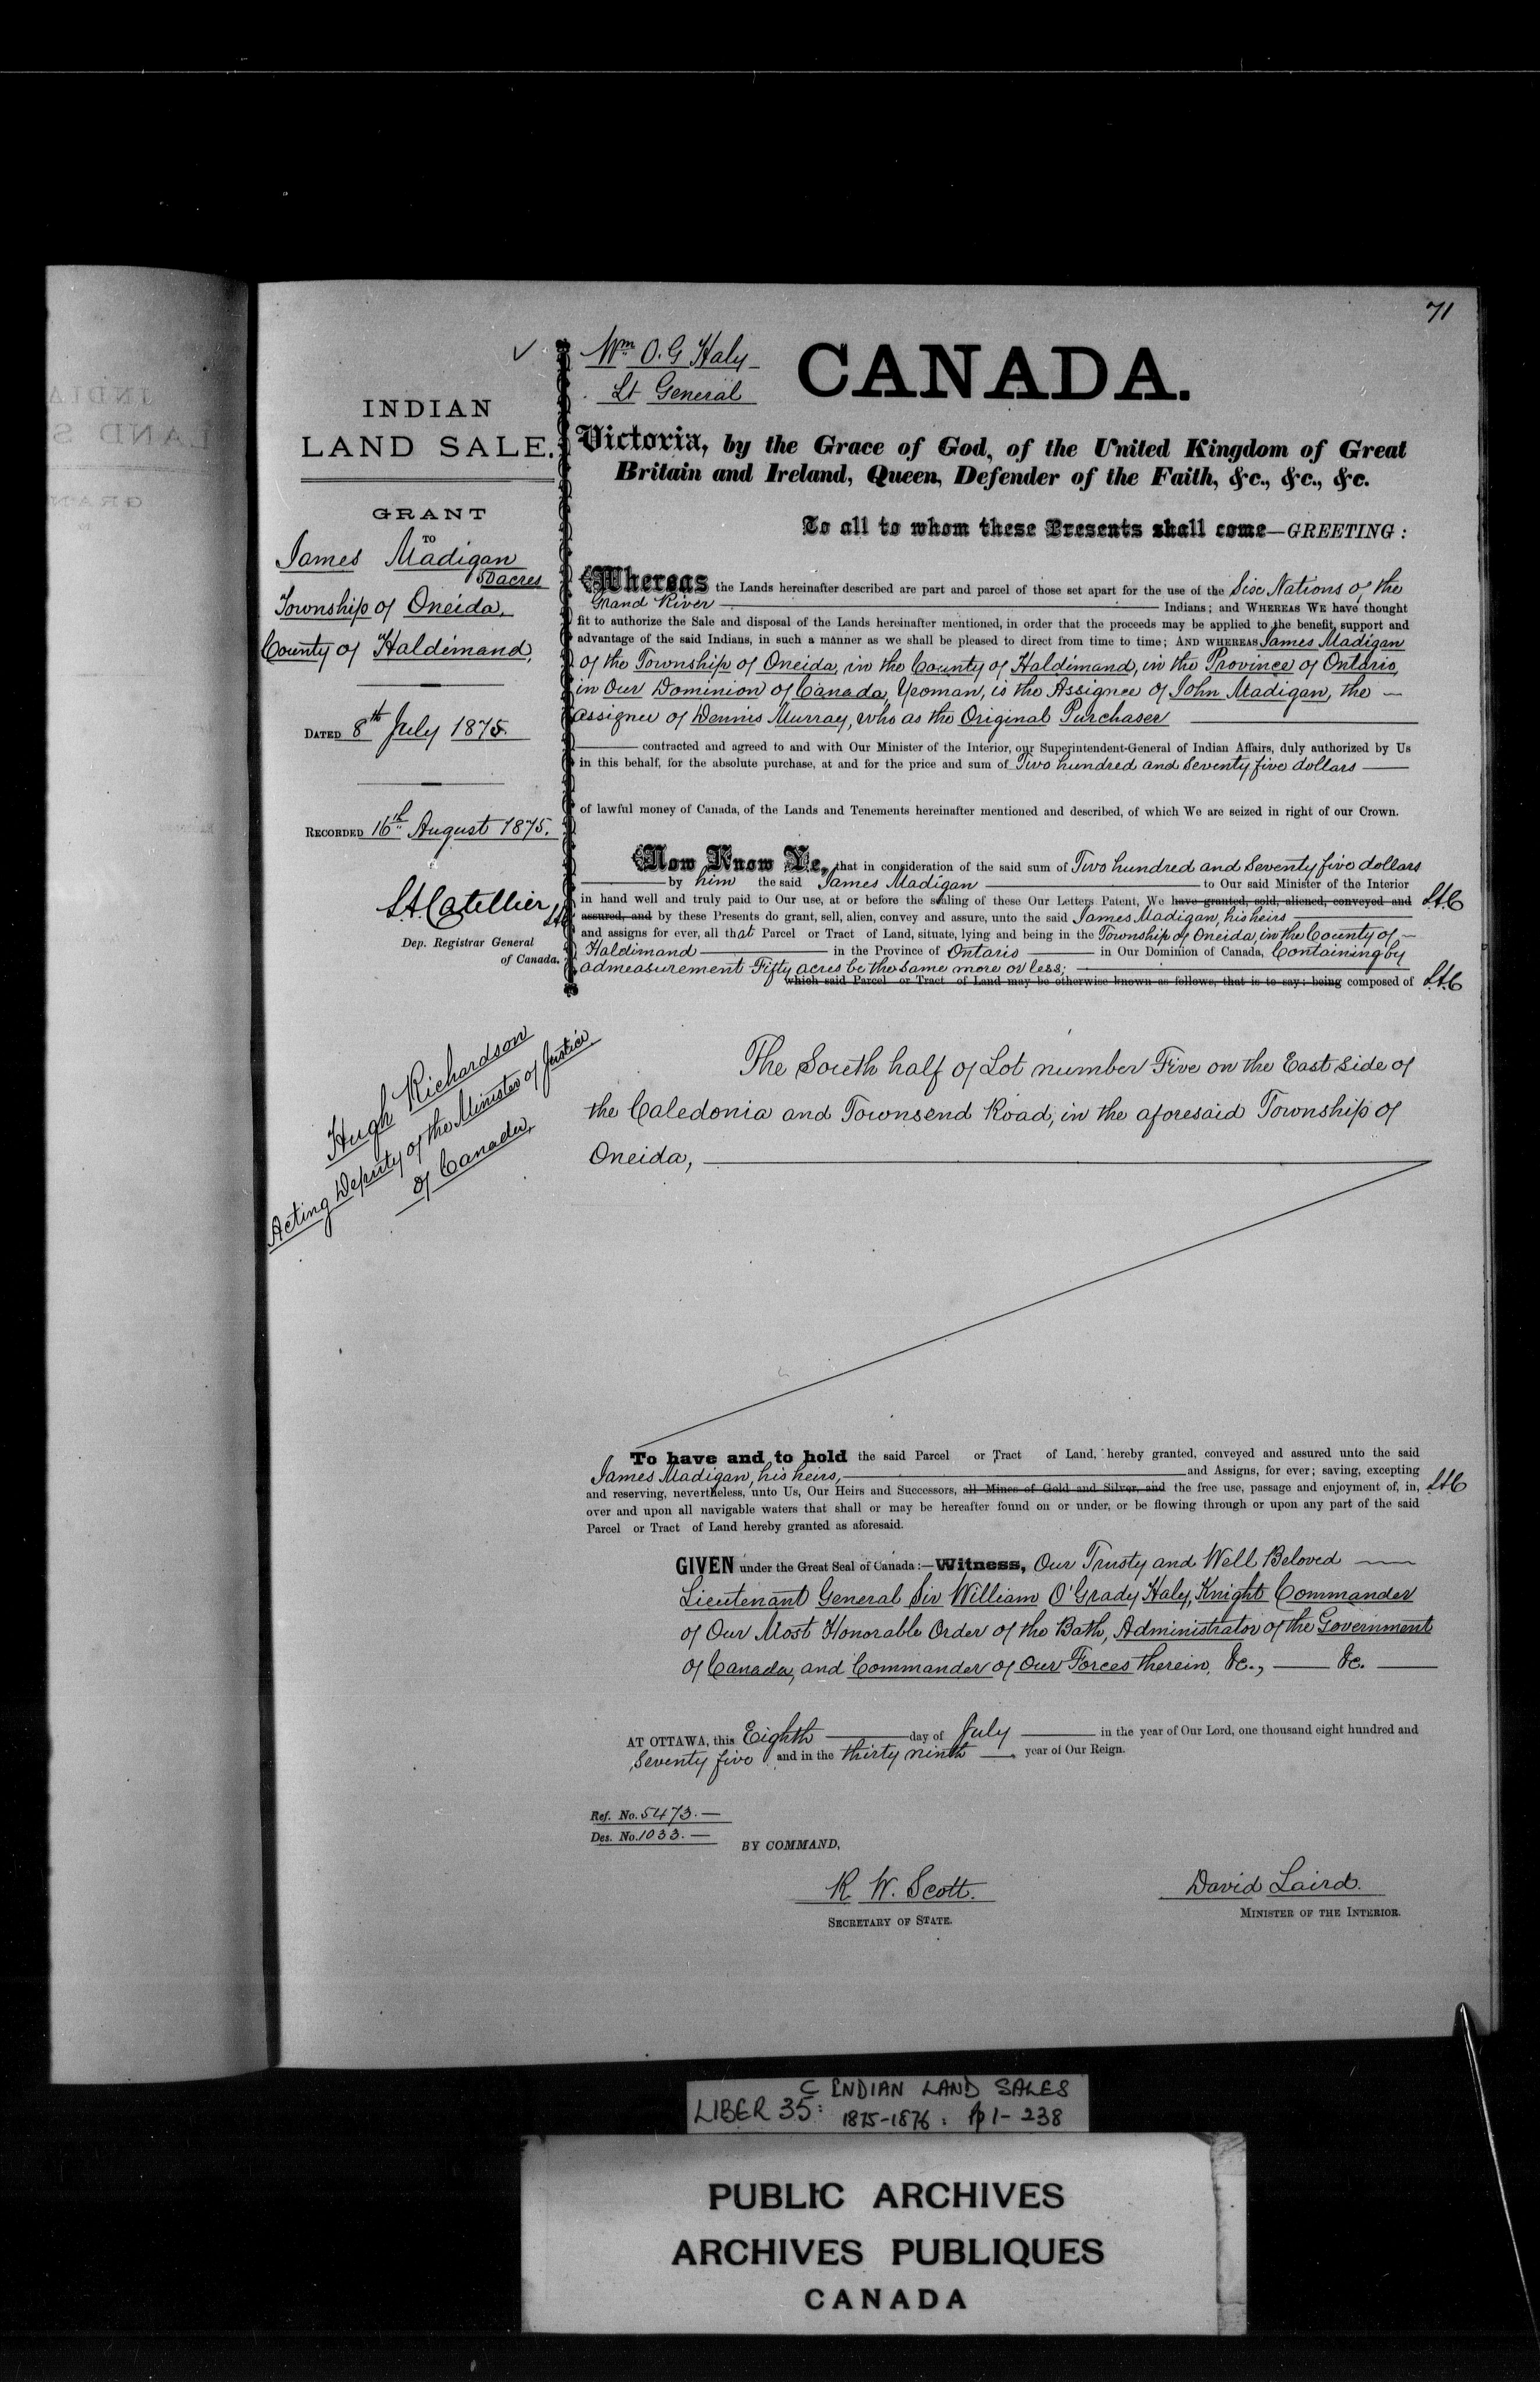 71
✓
Wm O. G Haly
Lt General
CANADA.
INDIAN
LAND SALE.
GRANT
TO
James Madigan
50 acres
Township of Oneida,
County of Haldimand,
DATED 8th July 1875.
RECORDED 16th August 1875.
L A Catellier
Dep. Registrar General
of Canada.
Hugh Richardson
Acting Deputy of the Minister of Justice
of Canada,
Victoria, by the Grace of God, of the United Kingdom of Great
Britain and Ireland, Queen, Defender of the Faith, &c., &c., &c.
To all to whom these Presents shall come—GREETING:
Whereas the Lands hereinafter described are part and parcel of those set apart for the use of the Six Nations of the
Grand River Indians; and WHEREAS WE have thought
fit to authorize the Sale and disposal of the Lands hereinafter mentioned, in order that the proceeds may be applied to the benefit, support and
advantage of the said Indians, in such a manner as we shall be pleased to direct from time to time; AND WHEREAS James Madigan
of the Township of Oneida, in the County of Haldimand, in the Province of Ontario,
in Our Dominion of Canada, Yeoman, is the Assignee of John Madigan, the
assignee of Dennis Murray, who as the Original Purchaser
contracted and agreed to and with Our Minister of the Interior, our Superintendent-General of Indian Affairs, duly authorized by Us
in this behalf, for the absolute purchase, at and for the price and sum of Two hundred and Seventy five dollars
of lawful money of Canada, of the Lands and Tenements hereinafter mentioned and described, of which We are seized in right of our Crown.
Now Know Ye, that in consideration of the said sum of Two hundred and Seventy five dollars
by him the said James Madigan to Our said Minister of the Interior
in hand well and truly paid to Our use, at or before the sealing of these Our Letters Patent, We have granted, sold, aliened, conveyed and LAC
LAC assured, and by these Presents do grant, sell, alien, convey and assure, unto the said James Madigan, his heirs
and assigns for ever, all that Parcel or Tract of Land, situate, lying and being in the Township of Oneida, in the County of
Haldimand in the Province of Ontario in Our Dominion of Canada, Containing by
admeasurement Fifty acres be the same more or less;
which said Parcel or Tract of Land may be otherwise known as follows, that is to say: being composed of LAC
The South half of Lot number Five on the East side of
the Caledonia and Townsend Road, in the aforesaid Township of
Oneida,
To have and to hold the said Parcel or Tract of Land, hereby granted, conveyed and assured unto the said
James Madigan, his heirs, and Assigns, for ever; saving, excepting
and reserving, nevertheless, unto Us, Our Heirs and Successors, all Mines of Gold and Silver, and the free use, passage and enjoyment of, in, LAC
over and upon all navigable waters that shall or may be hereafter found on or under, or be flowing through or upon any part of the said
Parcel or Tract of Land hereby granted as aforesaid.
GIVEN under the Great Seal of Canada:—Witness, Our Trusty and Well Beloved
Lieutenant General Sir William O'Grady Haly, Knight Commander
of Our Most Honorable Order of the Bath, Administrator of the Government
of Canada, and Commander of Our Forces therein, &c., &c.
AT OTTAWA, this Eighth day of July in the year of Our Lord, one thousand eight hundred and
Seventy five and in the thirty ninth year of Our Reign.
Ref. No. 5473.—
Des. No. 1033.—
BY COMMAND,
R. W. Scott.
SECRETARY OF STATE.
David Laird.
MINISTER OF THE INTERIOR.
C INDIAN LAND SALES
LIBER 35: 1875-1876: pp 1-238
PUBLIC ARCHIVES
ARCHIVES PUBLIQUES
CANADA